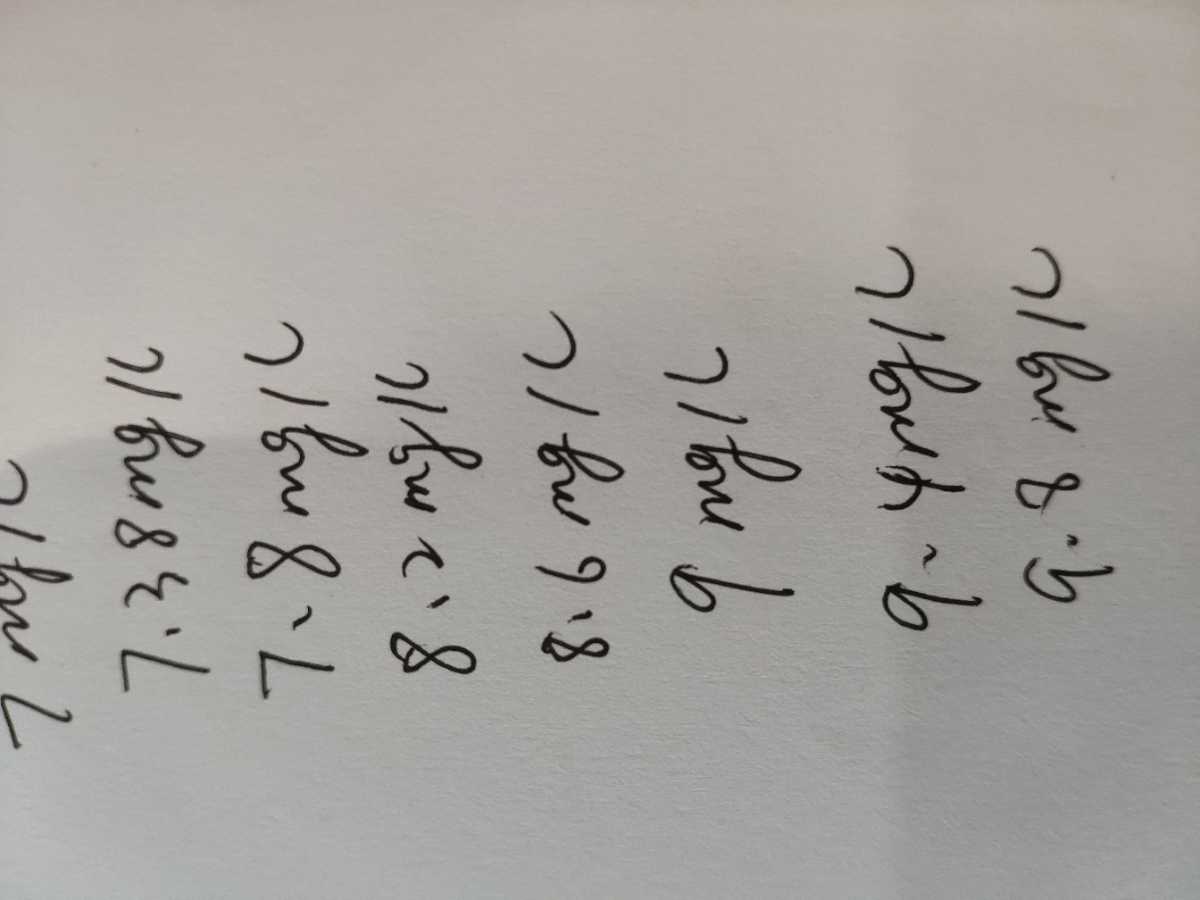 7 mg/L
7.38 mg/L
7.8 mg/L
8.2 mg/L
8.6 mg/L
9 mg/L
9.4 mg/L
9.8 mg/L